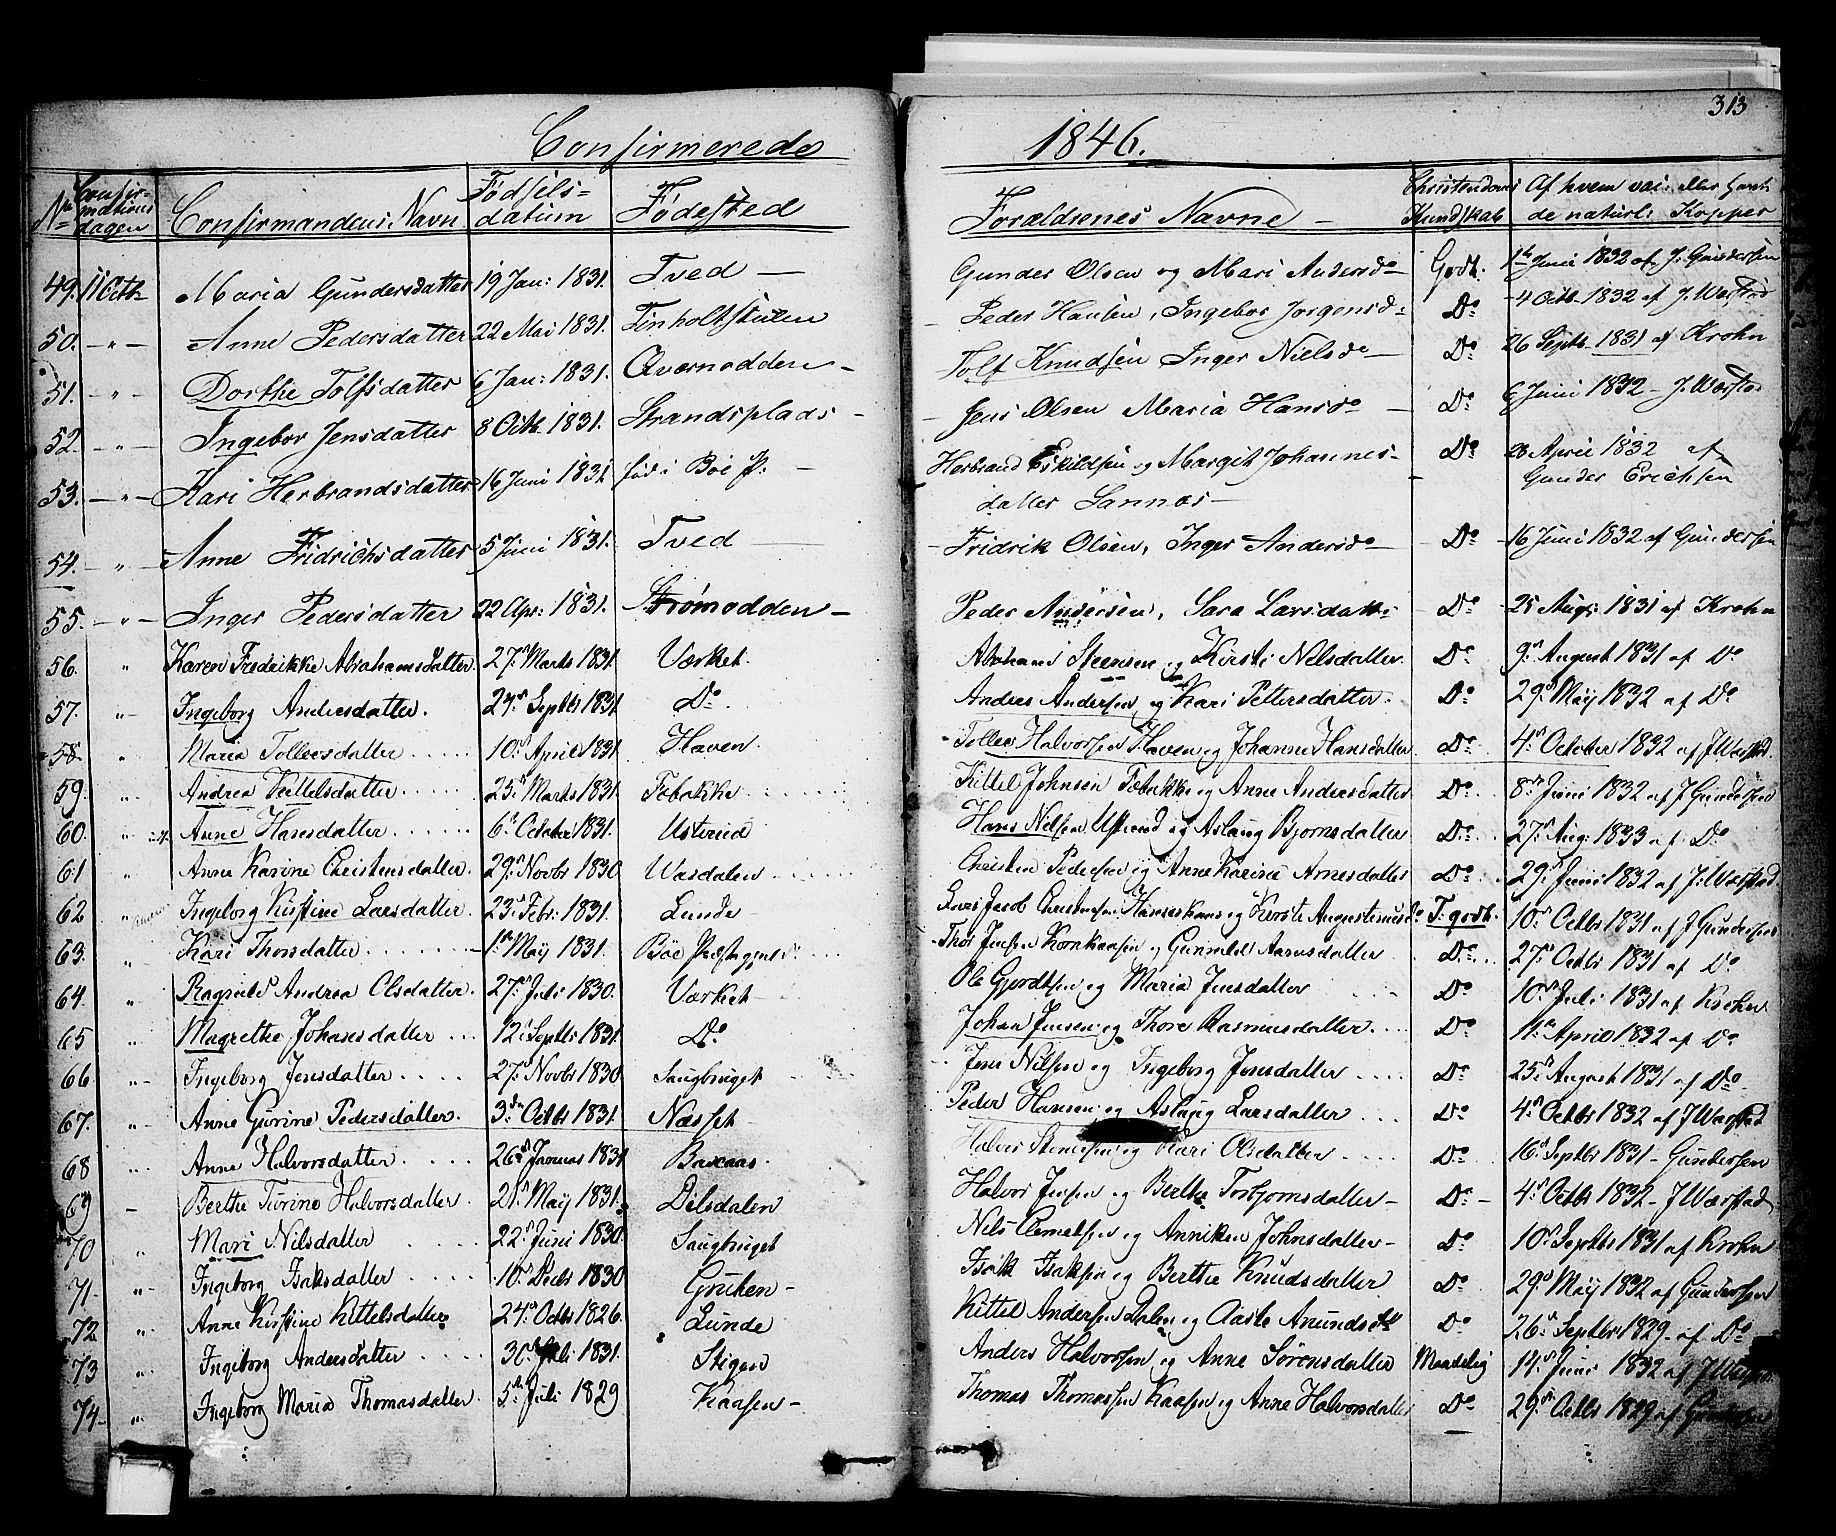 313
Confirmerede 1846.
No Confirmations dagen Confirmandens Navn Fødsels= datum Fødested Forældrenes Navne Christendoms Kundskab Af hvem vac: eller havt de naturl: Kopper
49. 11 Octb Maria Gundersdatter 19 Jan: 1831. Tved — Gunder Olsen og Mari Andersd Godt. 1 Juni 1832 af J. Gundersen
50. — " — Anne Pedersdatter 22 Mai 1831. Peder Hansen, Ingebor Jørgensd Do 4 Octb 1832 af J. Værstad
51. — " — Dorthe Tolfsdatter 6 Jan: 1831. Qværnodden — Tolf Knudsen Inger Nielsd — Do 26 Septb 1831 af Krohn
52. " — Ingebor Jensdatter 8 Octb. 1831. Strandsplads — Jens Olsen Maria Hansd — Do 6 Juni 1832 — J. Værstad
53. — " — Kari Herbrandsdatter 16 Juni 1831 fød i Bøe P. — Herbrand Eskildsen og Margit Johannes- Do April 1832 af
datter Sannæs — Gunder Erichsen
54. — " — Anne Fridrichsdatter 5 Juni 1831. Tved — Fridrik Olsen, Inger Andersd — Do 16 Juni 1832 af Gundersen
55. — " — Inger Pedersdatter 22 Apr: 1831. Strømodden — Peder Andersen, Sara Larsdatt: Do 25 Aug: 1831 af Krohn
56. " Karen Fredrikke Abrahamsdatter. 27. Marts 1831. Værket. Abraham Steensen og Kirsti Nelsdatter Do 9. August 1831 af Do
57. " Ingeborg Andersdatter. 27. Septbr 1831 Do Anders Andersen og Kari Pettersdatter. Do 29. May 1832 af Do
58 " Maria Tollevsdatter 10. April 1831. Haven. Tollev Halvorsen Haven og Johanne Hansdatter Do 4. October 1832 af J Værstad.
59. " Andrea Kittelsdatter 25. Marts 1831. Fæbakke Kittel Johnsen Fæbakke og Anne Andersdatter Do 8. Juni 1832 af J Gundersen
60. " Anne Hansdatter 6. October 1831. Ustrud Hans Nelsen Ustrud og Aslaug Bjornsdatter Do 27. Aug: 1833 af Do
61 " Anne Karine Christensdatter. 29. Novbr 1830 Vasdalen Christen Pedersen og Anne Karine Arnesdatter Do 29. Juni 1832 af J. Værstad.
62 " Ingeborg Kirstine Larsdatter. 23. Febr: 1831. Lunde Lars Jacob Christensen og Kirste Augustinusd T. godt. 10. Octbr 1831 af J Gundersen
63. " Kari Thorsdatter 1. May 1831. Bøe Thor Jensen og Gunnild Aarnsdatter Do 27. Octbr 1831 af Do
64. " Ragnild Andrea Olsdatter. 27. Juli 1830. Værket — Ole Gjerdtsen og Maria Jensdatter Do 10. Juli 1831 af Krohn
65 " Magrethe Johansdatter 12. Septbr 1831. Do Johan Jensen og Thore Rasmusdatter Do 11. April 1832 af Do
66 " Ingeborg Jensdatter 27. Novbr 1830 Saugbruget Jens Nelsen og Ingeborg Jensdatter Do 25. August 1831 af Do
67. " Anne Gurine Pedersdatter. 3. Octbr 1831. Næsset — Peder Hansen og Aslaug Larsdatter Do 4. Octbr 1832 af J Værstad
68 " Anne Halvorsdatter 26. Januar 1831 Baxaas Halvor Stenersen og Kari Olsdatter Do 16. Septbr 1831 — Gundersen
69 — Berthe Torine Halvorsdatter. 21. May 1831. Dilsdalen Halvor Jensen og Berthe Torbjornsdatter — Do — 4. Octbr 1832 — J Værstad
70 " Mari Nilsdatter 22. Juni 1830. Saugbruget Nils Clemetsen og Anniken Johnsdatter — Do 10. Septbr 1831 af Krohn
71 " Ingeborg Isaksdatter 10. Decbr 1830 Gruben — Isak Isaksen og Berthe Knudsdatter Do 29. May 1832. af Gundersen
72 " Anne Kirstine Kittelsdatter 24. Octbr 1826. Lunde Kittel Andersen Dalen og Aaste Anundsd Do 26. Septbr 1829. af Do
73 " Ingeborg Andersdatter 30. Juli 1831. Stigen Anders Halvorsen og Anne Sørensdatter Maadelig 14. Juni 1832 af J Værstad.
74 " Ingeborg Maria Thomasdatter. 5. Juli 1829 Kaasen — Thomas Thomassen Kaasen og Anne Halvorsdatter Do 29. Octbr 1829 af Gundersen